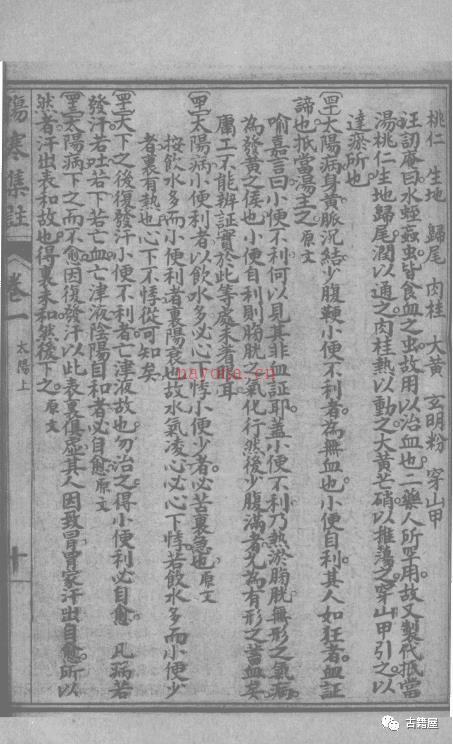 桃仁 生地 歸尾 肉桂 大黃 玄明粉 穿山甲
汪訒庵曰水蛭蝱虫皆食血之虫故用以治血也二藥人所罕用故又製代抵當
湯桃仁生地歸尾潤以通之肉桂熱以動之大黃芒硝以推蕩之穿山甲引之以
達瘀所也
太陽病身黃脈沉結少腹鞕小便不利者為無血也小便自利其人如狂者血証
諦也抵當湯主之原文
喻嘉言曰小便不利何以見其非血証耶蓋小便不利乃熱淤膀胱無形之氣病
為發黃之候也小便自利則膀胱氣化行然後少腹滿者允為有形之蓄血矣
庸工不能辨証實於此等處未著眼耳
太陽病小便利者以飲水多必心下悸小便少者必苦裏急也原文
按飲水多而小便利者裏陽衰也故水氣凌心必心下悸若飲水多而小便少
者裏有熱也心下不悸從可知矣
大下之後復發汗小便不利者亡津液故也勿治之得小便利必自愈 凡病若
發汗若吐若下若亡血亡津液陰陽自和者必自愈原文
太陽病下之而不愈因復發汗以此表裏俱虛其人因致冒冒家汗出自愈所以
然者汗出表和故也得裏未和然後下之原文
傷寒集註 卷一 太陽上 十
naroha.cn
古籍屋